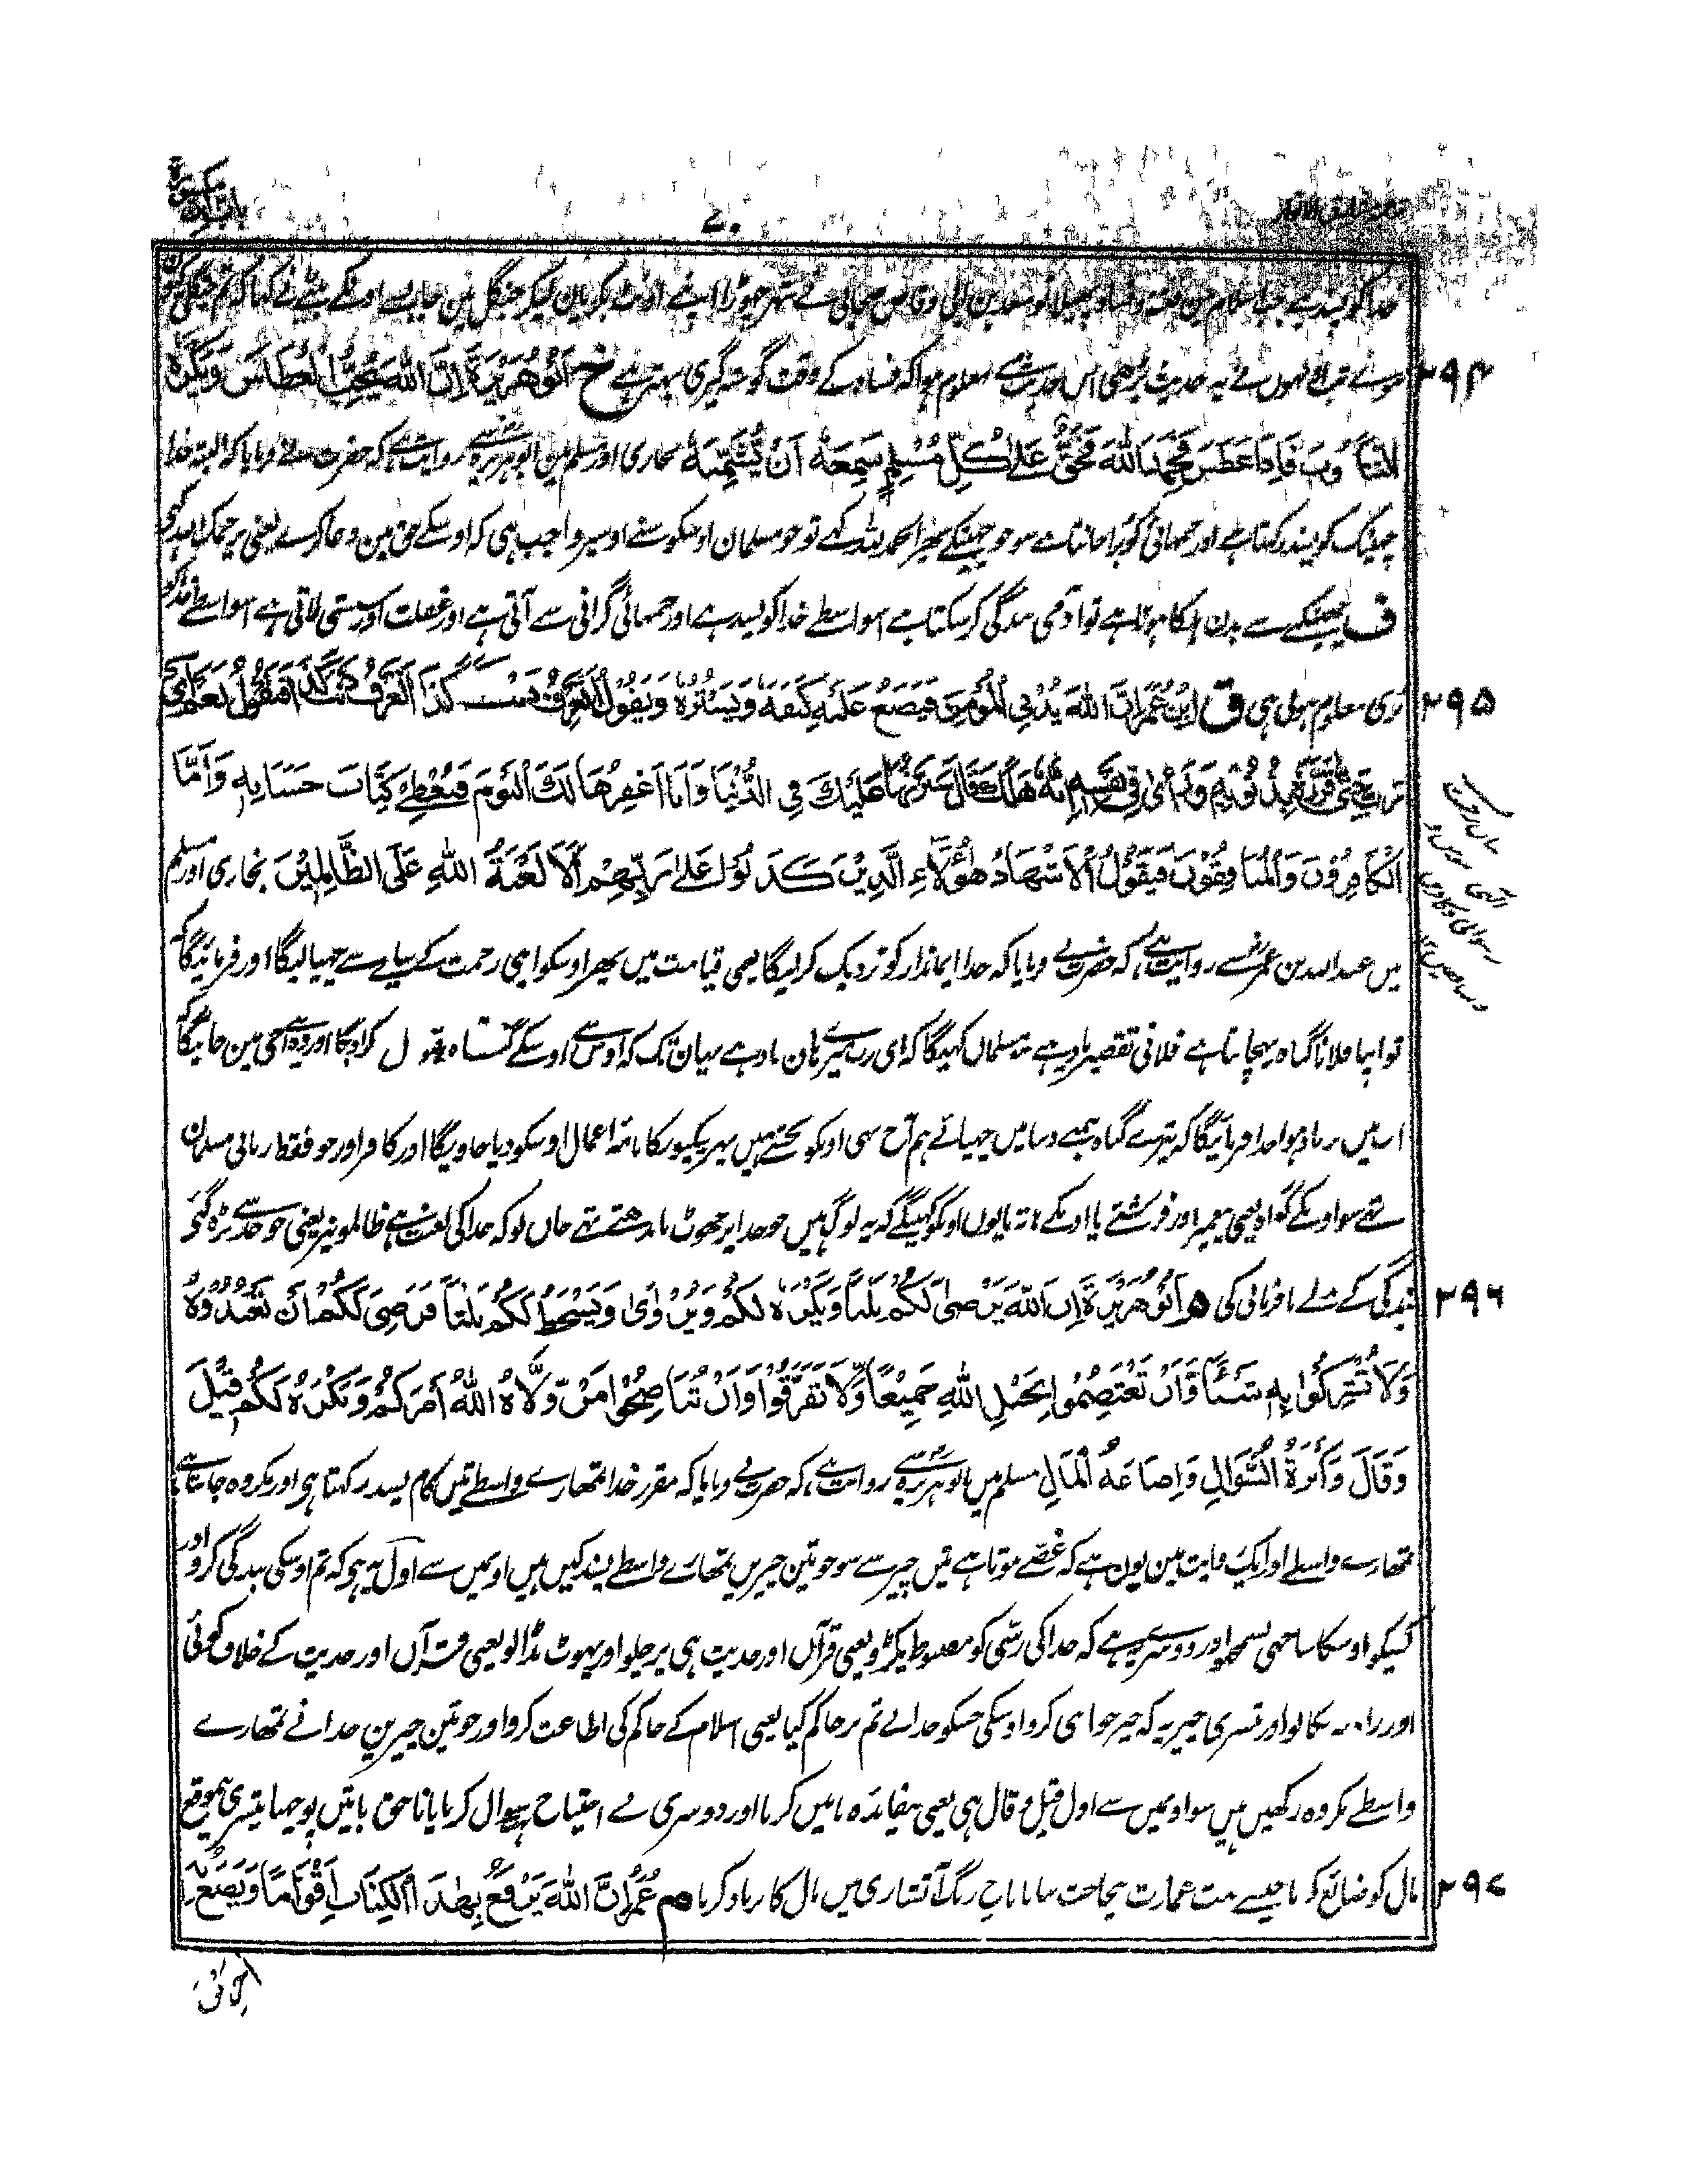 ۷۰
خدا کو پسند ہے جب اسلام میں فتنہ و فساد پھیلا تو سعد بن ابی وقاص صحابی نے شہر چھوڑا اپنے اونٹ بکریاں لیکر جنگل میں جا رہے اونکے بیٹے نے کہا کہ تم جنگلی
۲۹۴ ہوئے تب اونہوں نے یہ حدیث پڑھی اس حدیث سے معلوم ہوا کہ فساد کے وقت گوشہ گیری بہتر ہے خ اَبُوْهُرَيْرَةَ اِنَّ اللّٰهَ يُحِبُّ الْعُطَاسَ وَيَكْرَهُ
التَّثَاؤُبَ فَاِذَا عَطَسَ فَحَمِدَ اللّٰهَ فَحَقٌّ عَلٰى كُلِّ مُسْلِمٍ سَمِعَهٗ اَنْ يُّشَمِّتَهٗ بخاری اور مسلم میں ابوہریرہ سے روایت ہے کہ حضرت نے فرمایا کہ البتہ خدا
چھینک کو پسند رکھتا ہے اور جمہائی کو برا مانتا ہے سو جو چھینکے پھر الحمد للہ کہے تو جو مسلمان اوسکو سنے اوسپر واجب ہی کہ اوسکے حق مین دعا کرے یعنی یرحمک اللہ کہے
ف چھینکنے سے بدن ہلکا ہوتا ہے تو آدمی بندگی کر سکتا ہے اسواسطے خدا کو پسند ہے اور جمہائی گرانی سے آتی ہے اور غفلت اور سستی لاتی ہے اسواسطے خدا کو
۲۹۵ بری معلوم ہوتی ہی ق اِبْنُ عُمَرَ اِنَّ اللّٰهَ يُدْنِي الْمُؤْمِنَ فَيَضَعُ عَلَيْهِ كَنَفَهٗ وَيَسْتُرُهٗ وَيَقُوْلُ اَتَعْرِفُ ذَنْبَ كَذَا اَتَعْرِفُ ذَنْبَ كَذَا فَيَقُوْلُ نَعَمْ اَيْ
رَبِّ حَتّٰى قَرَّرَهٗ بِذُنُوْبِهٖ وَرَاٰى فِيْ نَفْسِهٖ اَنَّهٗ هَلَكَ قَالَ سَتَرْتُهَا عَلَيْكَ فِي الدُّنْيَا وَاَنَا اَغْفِرُهَا لَكَ الْيَوْمَ فَيُعْطٰى كِتَابَ حَسَنَاتِهٖ وَاَمَّا
الْكَافِرُوْنَ وَالْمُنَافِقُوْنَ فَيَقُوْلُ الْاَشْهَادُ هٰؤُلَاءِ الَّذِيْنَ كَذَبُوْا عَلٰى رَبِّهِمْ اَلَا لَعْنَةُ اللّٰهِ عَلَى الظَّالِمِيْنَ بخاری اور مسلم
میں عبداللہ بن عمر سے روایت ہے کہ حضرت نے فرمایا کہ خدا ایماندار کو نزدیک کر لیگا یعنی قیامت میں پھر اوسکو اپنی رحمت کے سایے سے چھپا لیگا اور فرمائیگا کہ
تو اپنا فلانا گناہ پہچانتا ہے فلانی تقصیر یاد ہے تو مسلمان کہیگا کہ ای رب میرے ہان یاد ہے یہان تک کہ اوس سے اوسکے گناہ قبول کراویگا اور وہ اپنے جی مین جانیگا کہ
اب میں برباد ہوا خدا فرمائیگا کہ تیرے گناہ ہمنے دنیا میں چھپائے ہم آج بھی اونکو بخشتے ہیں پھر نیکیونکا نامۂ اعمال اوسکو دیا جاویگا اور کافر اور جو فقط زبانی مسلمان
تھے سو اونکے گواہ یعنی پیغمبر اور فرشتے یا اونکے ہاتھ پاؤں اونکو کہینگے کہ یہ لوگ ہیں جو خدا پر جھوٹ باندھتے تھے جان لو کہ خدا کی لعنت ہے ظالمونپر یعنی جو حد سے بڑھ گئے
۲۹۶ بندگی کے بدلے نافرمانی کی م اَبُوْهُرَيْرَةَ اِنَّ اللّٰهَ يَرْضٰى لَكُمْ ثَلٰثًا وَيَكْرَهُ لَكُمْ وَيُرْوٰى وَيَسْخَطُ لَكُمْ ثَلٰثًا فَرَضِيَ لَكُمْ اَنْ تَعْبُدُوْهُ
وَلَا تُشْرِكُوْا بِهٖ شَيْئًا وَاَنْ تَعْتَصِمُوْا بِحَبْلِ اللّٰهِ جَمِيْعًا وَّلَا تَفَرَّقُوْا وَاَنْ تُنَاصِحُوْا مَنْ وَلَّاهُ اللّٰهُ اَمْرَكُمْ وَيَكْرَهُ لَكُمْ قِيْلَ
وَقَالَ وَكَثْرَةَ السُّؤَالِ وَاِضَاعَةَ الْمَالِ مسلم میں ابوہریرہ سے روایت ہے کہ حضرت نے فرمایا کہ مقرر خدا تمھارے واسطے تین کام پسند رکھتا ہی اور مکروہ جانتا ہے
تمھارے واسطے اور ایک روایت مین یون ہے کہ غصے ہوتا ہے تین چیز سے سو جو تین چیزیں تمھارے واسطے پسند کیں ہیں اونمیں سے اول یہ ہی کہ تم اوسکی بندگی کرو اور
کسیکو اوسکا ساجھی نسمجھو اور دوسری یہ ہے کہ خدا کی رسی کو مضبوط پکڑو یعنی قرآن اور حدیث ہی پر چلو اور پھوٹ نڈالو یعنی قرآن اور حدیث کے خلاف کوئی
اور راہ نہ نکالو اور تیسری چیز یہ کہ خیر خواہی کرو اوسکی جسکو خدا نے تم پر حاکم کیا یعنی اسلام کے حاکم کی اطاعت کرو اور جو تین چیزین خدا نے تمھارے
واسطے مکروہ رکھیں ہیں سو اونمیں سے اول قیل و قال ہی یعنی بیفائدہ باتیں کرنا اور دوسری بے احتیاج سوال کرنا یا ناحق باتیں پوچھنا تیسری بیموقع
۲۹۷ مال کو ضائع کرنا جیسے بہت عمارت بیحاجت بنانا ناچ رنگ آتشبازی میں مال کا برباد کرنا م عُمَرُ اِنَّ اللّٰهَ يَرْفَعُ بِهٰذَا الْكِتَابِ اَقْوَامًا وَيَضَعُ